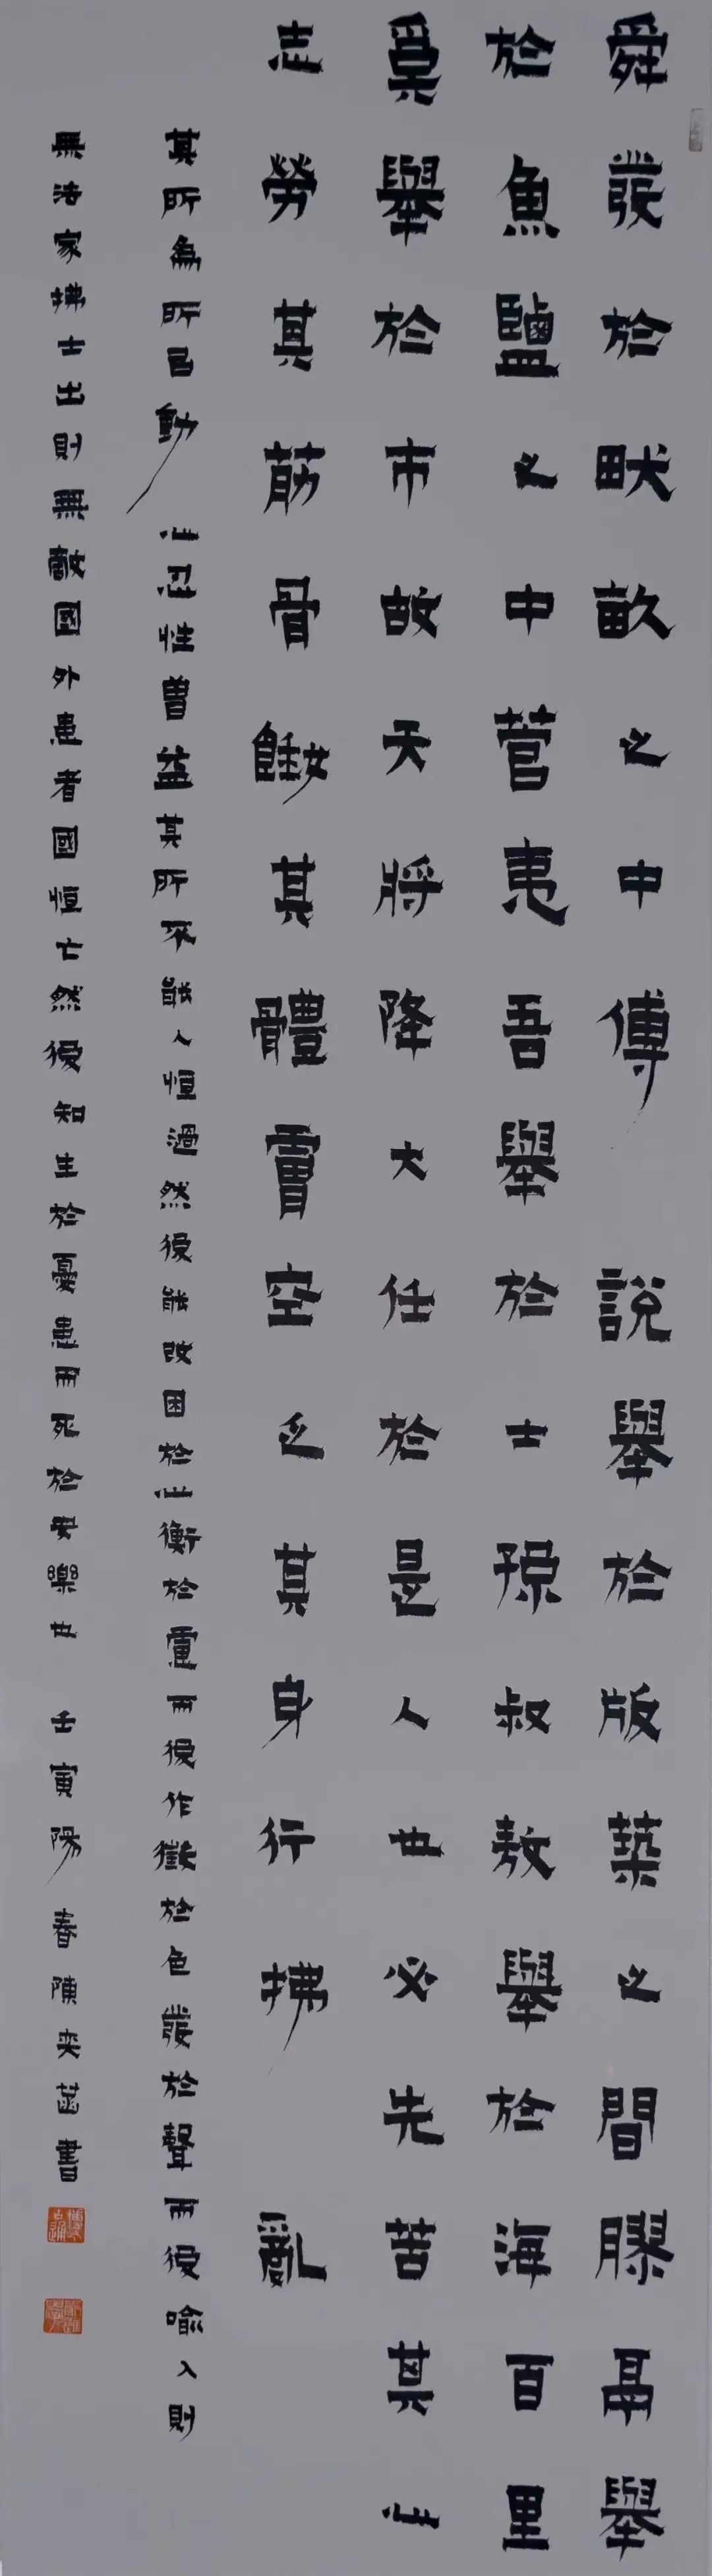 舜發於畎畝之中傅說舉於版築之間膠鬲舉
於魚鹽之中菅夷吾舉於士孫叔敖舉於海百里
奚舉於市故天將降大任於是人也必先苦其心
志勞其筋骨餓其體膚空乏其身行拂亂
其所為所以動心忍性曾益其所不能人恒過然後能改困於心衡於慮而後作徵於色發於聲而後喻入則
無法家拂士出則無敵國外患者國恒亡然後知生於憂患而死於安樂也 壬寅陽春陳奕菡書